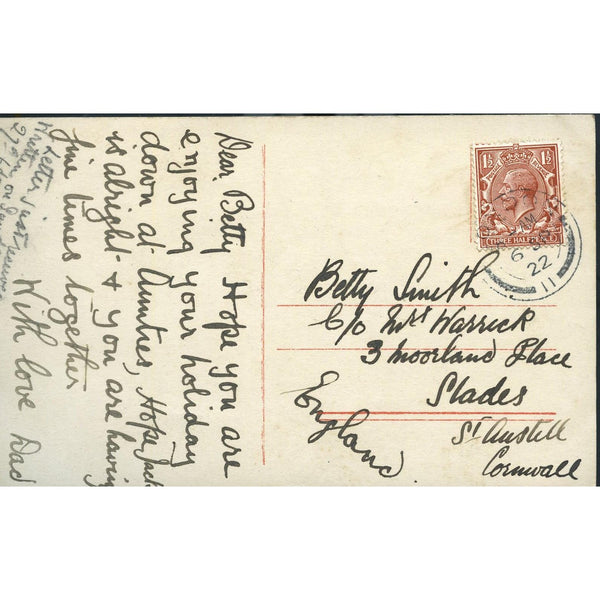 Dear Betty Hope you are
enjoying your holiday
down at Aunties, Hope Jack
is alright & you are having
fine times together
With love Dad
A letter just
1½ 1½
THREE HALFPENCE
6
22
11
Betty Smith
C/o Mrs Warrick
3 Moorland Place
Slades
St Austell
Cornwall
England